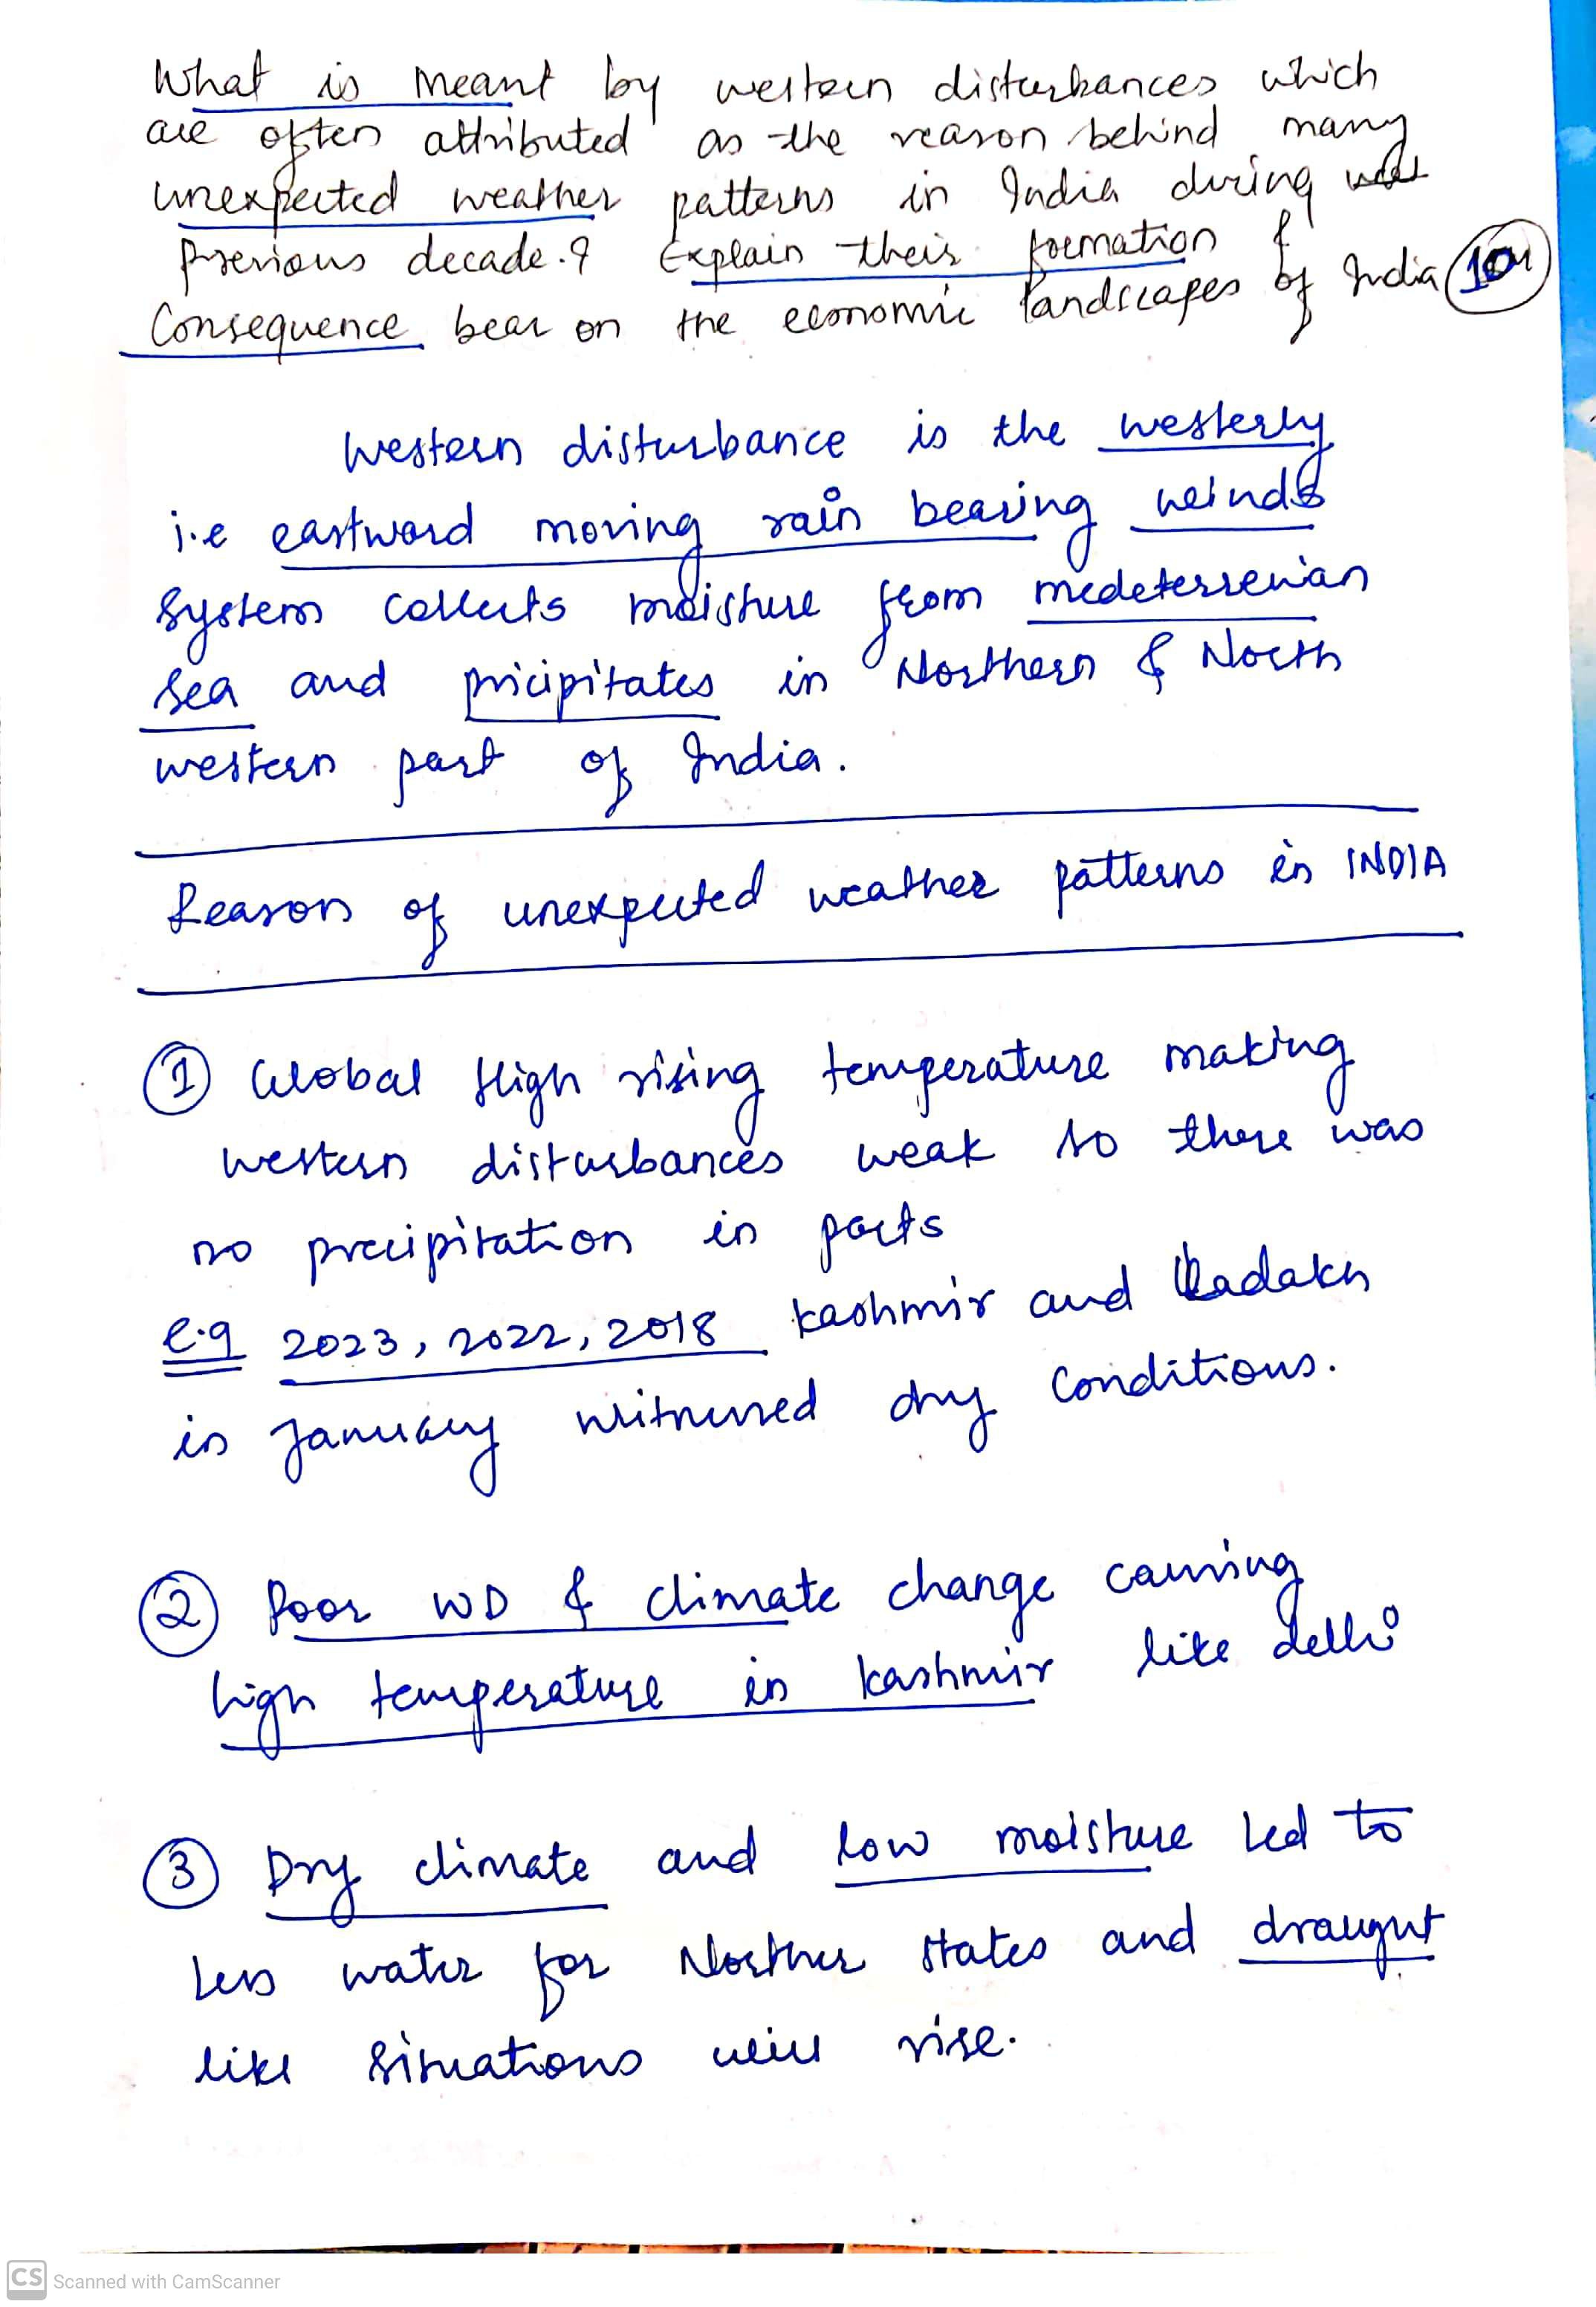 What is meant by western disturbances which
are often attributed as the reason behind many
unexpected weather patterns in India during
previous decade.? Explain their formation &
Consequence bear on the economic landscapes of India 10M
Western disturbance is the westerly
i.e eastward moving rain bearing winds
system collects moisture from medeterrenian
sea and pricipitates in Northern & North
western part of India.
Reason of unexpected weather patterns in INDIA
① Global High rising temperature making
western disturbances weak so there was
no precipitation in parts
e.g 2023, 2022, 2018 kashmir and Ladakh
in January witnessed dry conditions.
② Poor WD & climate change causing
high temperature in kashmir like delhi
③ Dry climate and low moisture led to
less water for Norther states and draught
like situations will rise.
CS Scanned with CamScanner